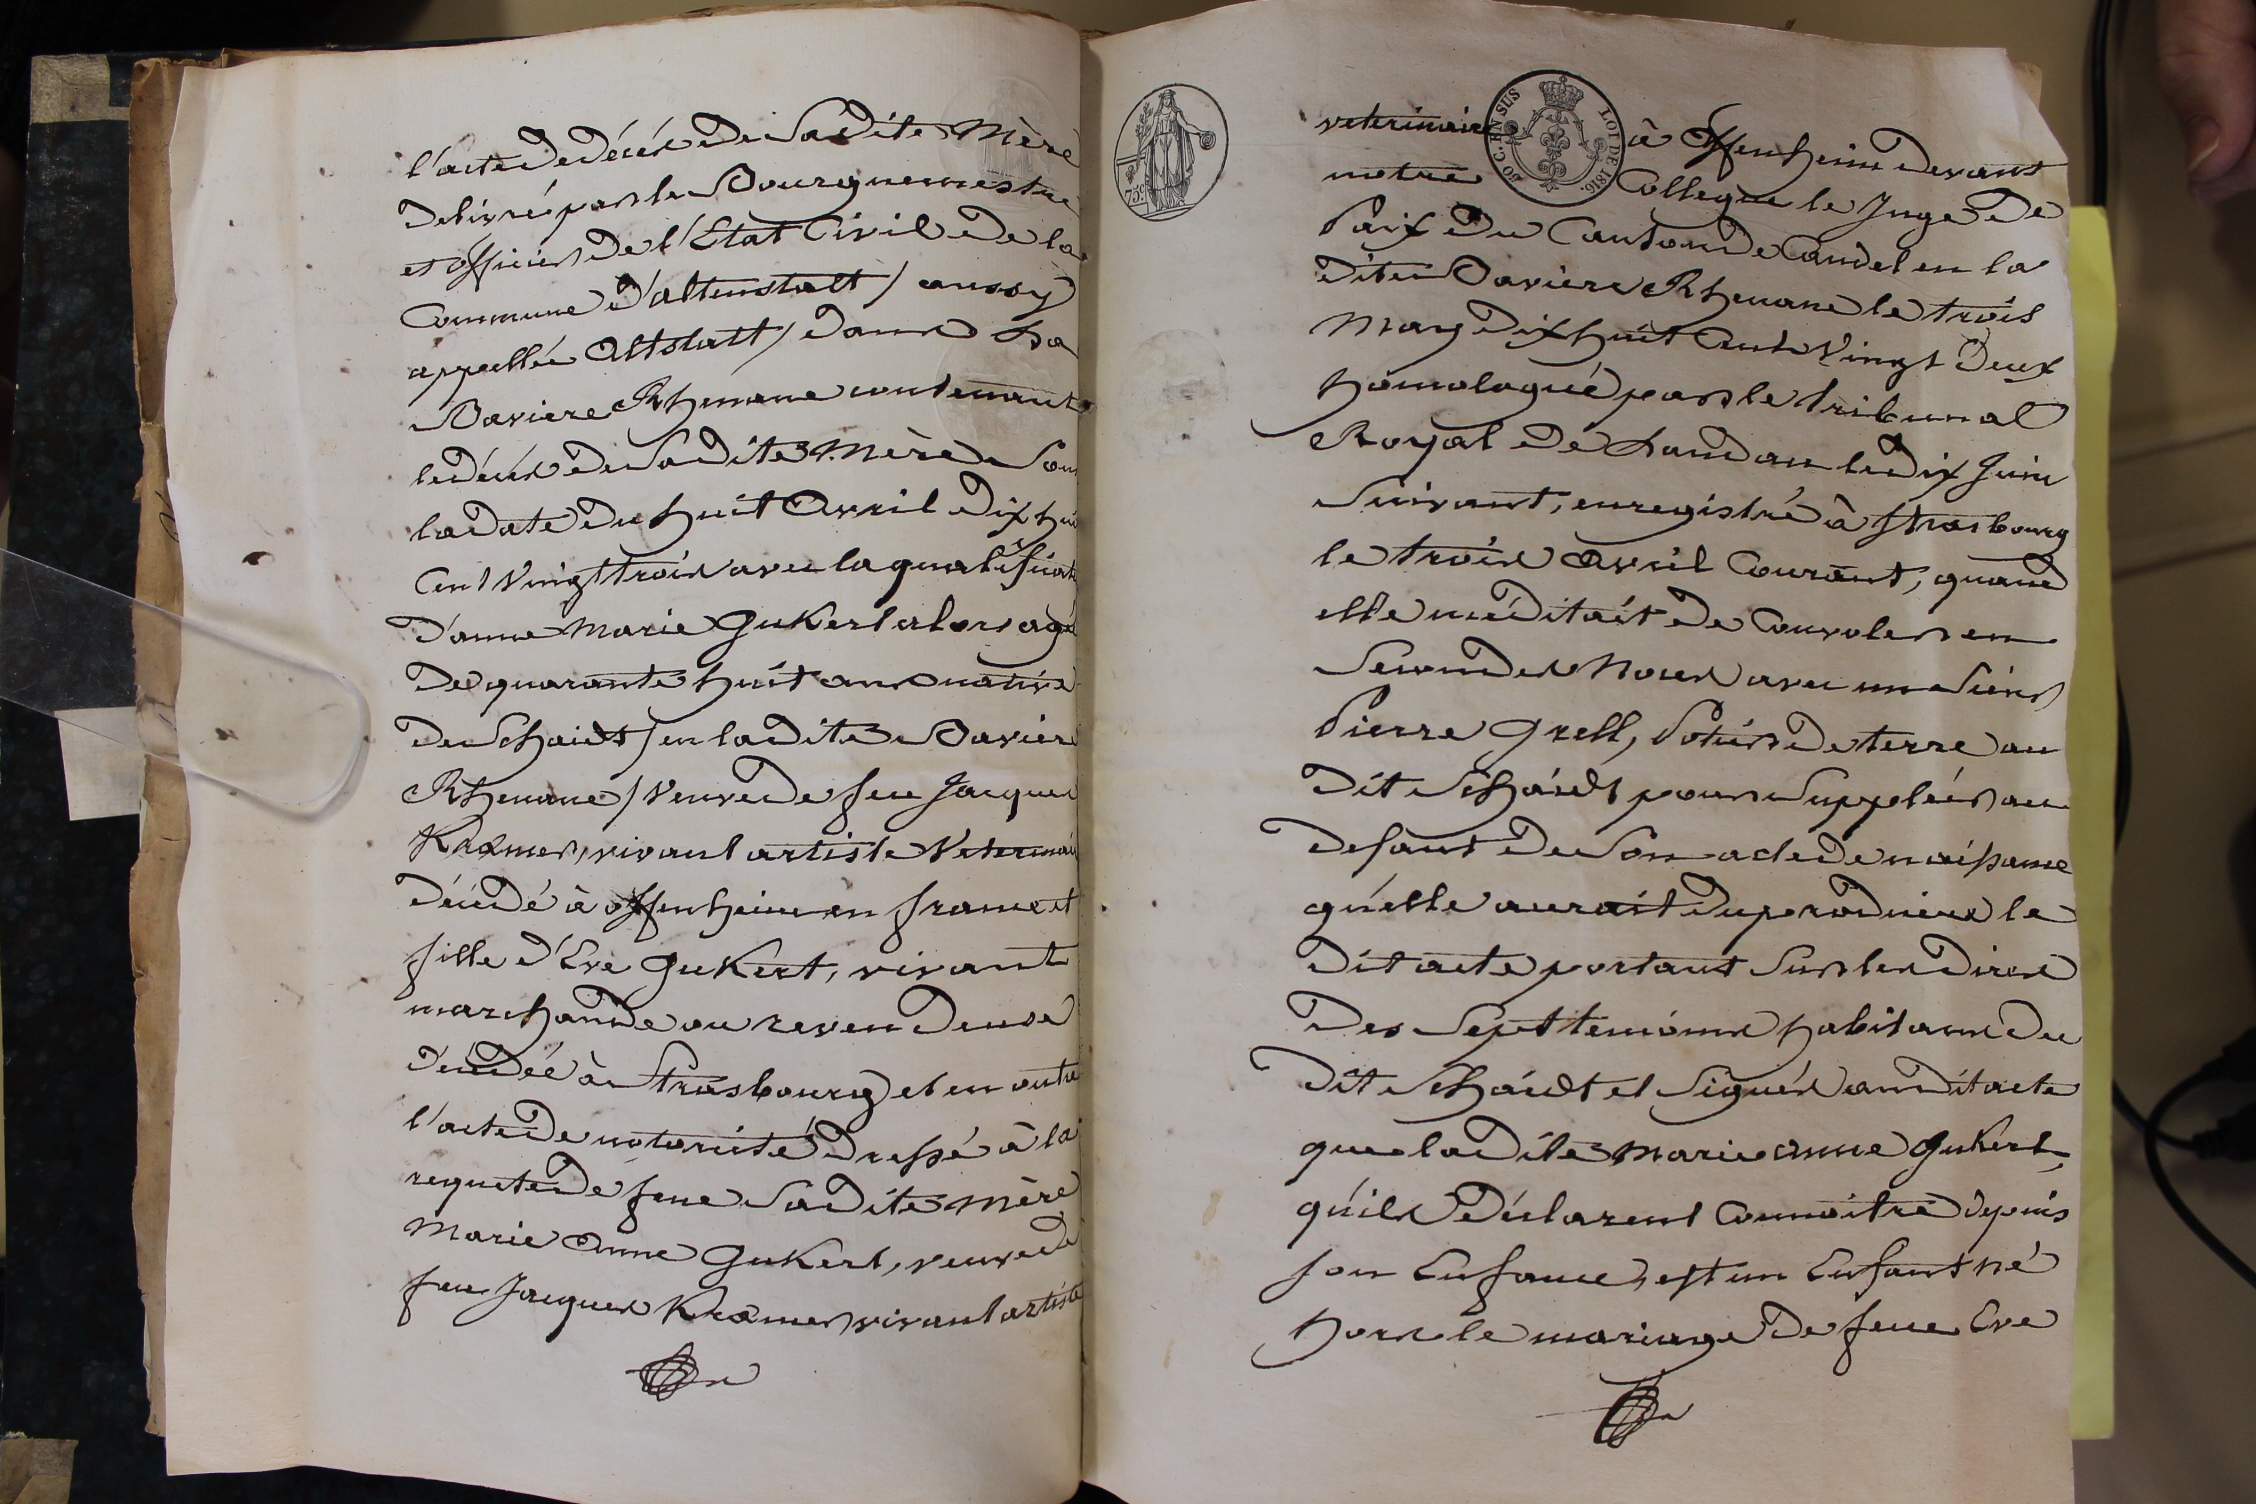 l'acte de décés de Sadite Mère
delivré par le Bourguemestre
et officier de l'Etat Civil de la
Commune d'altenstatt / aussy
appellée Altstatt / dans la
Baviere Rhenane contenant
le décés de Sadite Mère Sous
la date du huit Avril dix huit
Cent Vingt trois avec la qualification
d'anne Marie Gukert alors agée
de quarante huit ans native
de Schaidt / en la dite Baviere
Rhenane / Veuve de feu Jacques
Kræmer, vivant artiste Veterinaire
décédé à Offenheim en france et
fille d'Eve Gukert, vivant
marchande ou revendeuse
décédée à Strasbourg et en outre
l'acte de notorieté dressé à la
requete de feue Sadite Mère
Marie Anne Gukert, veuve de
feu Jacques Kræmer vivant artiste
veterinaire à Offenheim devant
notre Collegue le Juge de
Paix du Canton de Candel en la
dite Baviere Rhenane le trois
May dix huit Cent Vingt Deux
homologué par le tribunal
Royal de Landau le dix Juin
Suivant, enregistré à Strasbourg
le trois Avril Courant, quand
elle méditait de Convoler en
Secondes Noces avec un Sieur
Pierre Grell, Potier de terre au
dit Schaidt pour Suppléer au
defaut de Son acte de naissance
qu'elle aurait du produire le
dit acte portant Sur les dires
des Sept temoins habitans du
dit Schaidt et Signés au dit acte
que la dite Marie Anne Gukert,
qu'ils déclarent Connoitre depuis
son Enfance, est un Enfant né
hors le mariage de feue Eve
75 c.
DOC. EN SUS
LOI DE 1816.